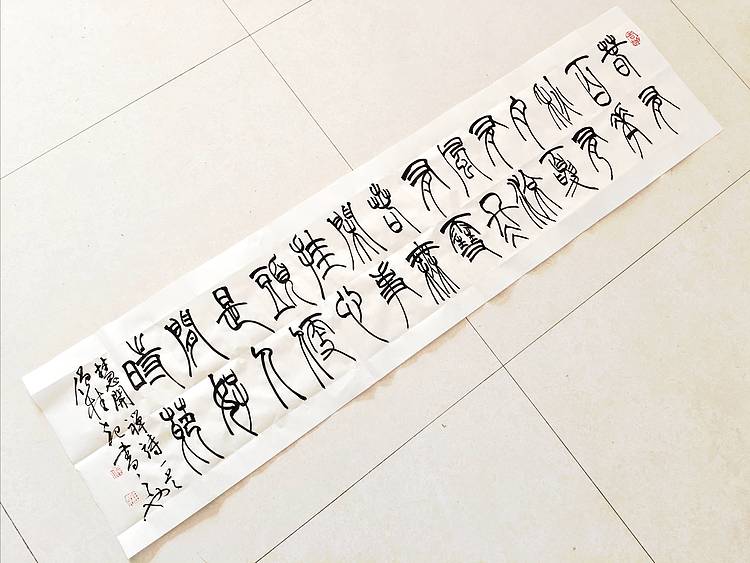 春有
百花
秋有
月夏
有涼
風冬
有雪
若無
閑事
挂心
頭便
是人
間好
時節
慧開禪詩一首
書